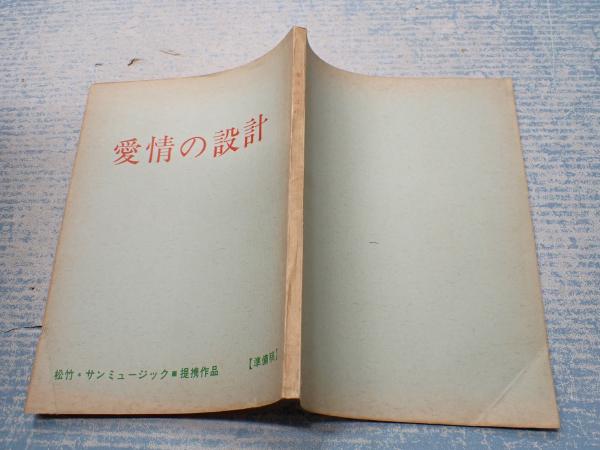 愛情の設計
【準備稿】
松竹・サンミュージック■提携作品